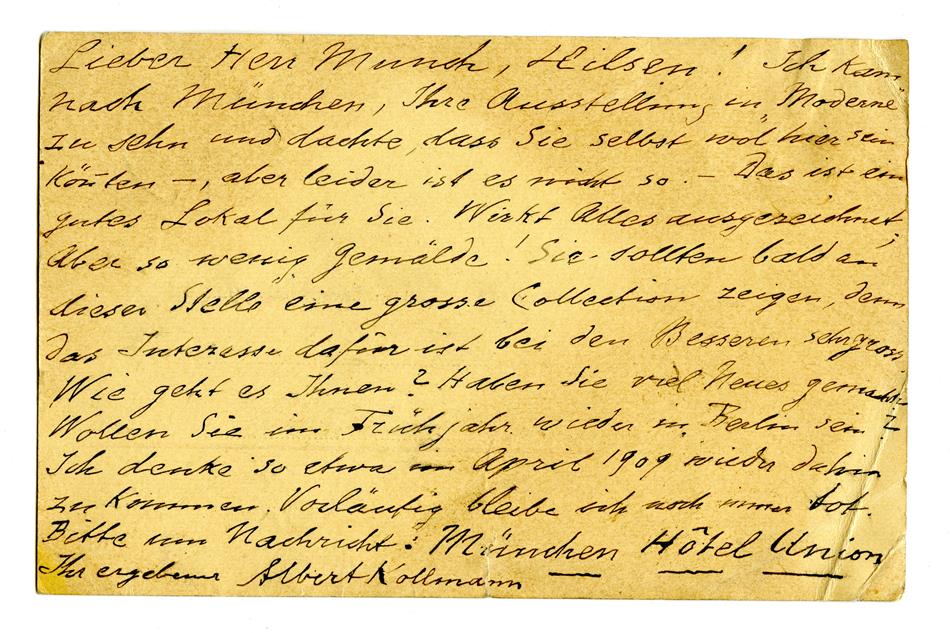 Lieber Herr Munch, Hilsen! Ich kam
nach München, Ihre Ausstellung in "Moderne"
zu sehn und dachte, dass Sie selbst wol hier sein
könten —, aber leider ist es nicht so. — Das ist ein
gutes Lokal für Sie. Wirkt Alles ausgezeichnet,
Aber so wenig Gemälde! Sie sollten bald an
dieser Stelle eine grosse Collection zeigen, denn
das Interesse dafür ist bei den Besseren sehr gross.
Wie geht es Ihnen? Haben Sie viel Neues gemacht?
Wollen Sie im Frühjahr wieder in Berlin sein?
Ich denke so etwa im April 1909 wieder dahin
zu kommen. Vorläufig bleibe ich noch immer tot.
Bitte um Nachricht: München Hôtel Union
Ihr ergebener Albert Kollmann